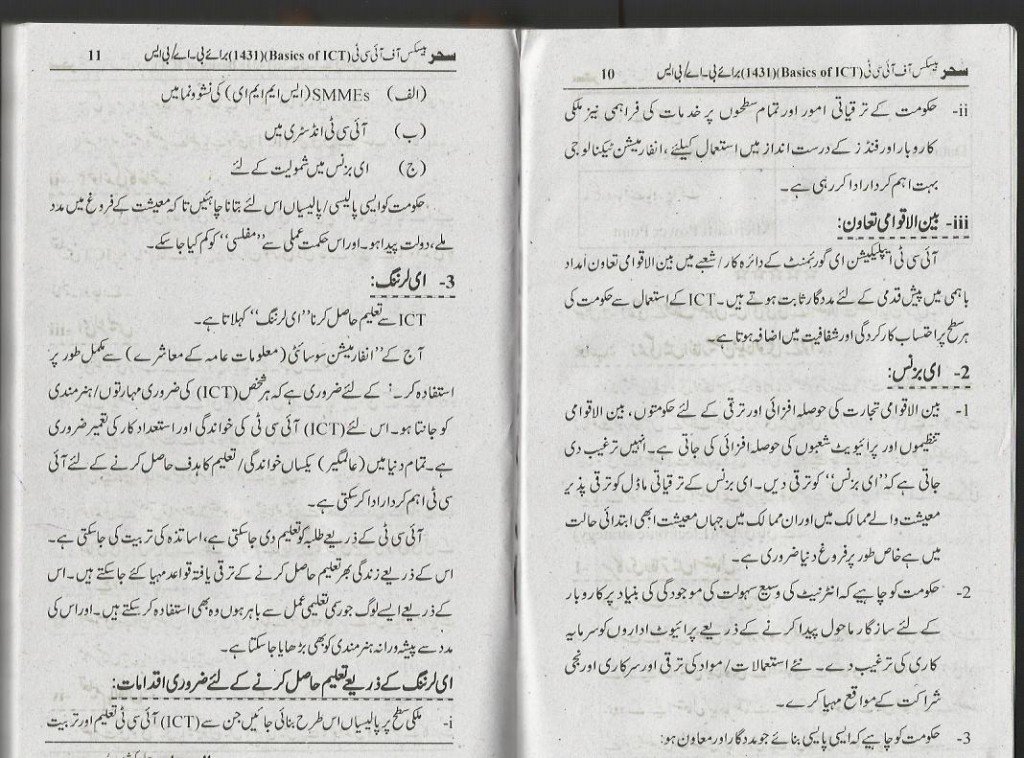 سحر بیسکس آف آئی سی ٹی (Basics of ICT)(1431) برائے بی۔اے/بی ایس 10
ii- حکومت کے ترقیاتی امور اور تمام سطحوں پر خدمات کی فراہمی نیز ملکی
کاروبار اور فنڈز کے درست انداز میں استعمال کیلئے، انفارمیشن ٹیکنالوجی
بہت اہم کردار ادا کر رہی ہے۔
iii- بین الاقوامی تعاون:
آئی سی ٹی ایپلیکیشن ای گورنمنٹ کے دائرہ کار/شعبے میں بین الاقوامی تعاون امداد
باہمی میں پیش قدمی کے لئے مددگار ثابت ہوتے ہیں۔ ICT کے استعمال سے حکومت کی
ہر سطح پر احتساب کارکردگی اور شفافیت میں اضافہ ہوتا ہے۔
2- ای بزنس:
1- بین الاقوامی تجارت کی حوصلہ افزائی اور ترقی کے لئے حکومتوں، بین الاقوامی
تنظیموں اور پرائیویٹ شعبوں کی حوصلہ افزائی کی جاتی ہے۔ انہیں ترغیب دی
جاتی ہے کہ ”ای بزنس“ کو ترقی دیں۔ ای بزنس کے ترقیاتی ماڈل کو ترقی پذیر
معیشت والے ممالک میں اور ان ممالک میں جہاں معیشت ابھی ابتدائی حالت
میں ہے خاص طور پر فروغ دنیا ضروری ہے۔
2- حکومت کو چاہیے کہ انٹرنیٹ کی وسیع سہولت کی موجودگی کی بنیاد پر کاروبار
کے لئے سازگار ماحول پیدا کرنے کے ذریعے پرائیوٹ اداروں کو سرمایہ
کاری کی ترغیب دے۔ نئے استعمالات/مواد کی ترقی اور سرکاری اور نجی
شراکت کے مواقع مہیا کرے۔
3- حکومت کو چاہیے کہ ایسی پالیسی بنائے جو مددگار اور معاون ہو:
سحر بیسکس آف آئی سی ٹی (Basics of ICT)(1431) برائے بی۔اے/بی ایس 11
(الف) SMMEs (ایس ایم ایم ای) کی نشوونما میں
(ب) آئی سی ٹی انڈسٹری میں
(ج) ای بزنس میں شمولیت کے لئے
حکومت کو ایسی پالیسی/پالیسیاں اس لئے بتانا چاہئیں تاکہ معیشت کے فروغ میں مدد
ملے، دولت پیدا ہو۔ اور اس حکمت عملی سے ”مفلسی“ کو کم کیا جا سکے۔
3- ای لرننگ:
ICT سے تعلیم حاصل کرنا ”ای لرننگ“ کہلاتا ہے۔
آج کے ”انفارمیشن سوسائٹی (معلومات عامہ کے معاشرے) سے مکمل طور پر
استفادہ کر کے لئے ضروری ہے کہ ہر شخص (ICT) کی ضروری مہارتوں/ہنرمندی
کو جانتا ہو۔ اس لئے (ICT) آئی سی ٹی کی خواندگی اور استعداد کار کی تعمیر ضروری
ہے۔ تمام دنیا میں (عالمگیر) یکساں خواندگی/تعلیم کا ہدف حاصل کرنے کے لئے آئی
سی ٹی اہم کردار ادا کر سکتی ہے۔
آئی سی ٹی کے ذریعے طلبہ کو تعلیم دی جا سکتی ہے، اساتذہ کی تربیت کی جا سکتی ہے۔
اس کے ذریعے زندگی بھر تعلیم حاصل کرنے کے ترقی یافتہ قواعد مہیا کئے جا سکتے ہیں۔ اس
کے ذریعے ایسے لوگ جو رسمی تعلیمی عمل سے باہر ہوں وہ بھی استفادہ کر سکتے ہیں۔ اور اس کی
مدد سے پیشہ ورانہ ہنرمندی کو بھی بڑھایا جا سکتا ہے۔
ای لرننگ کے ذریعے تعلیم حاصل کرنے کے لئے ضروری اقدامات:
i- ملکی سطح پر پالیسیاں اس طرح بنائی جائیں جن سے (ICT) آئی سی ٹی تعلیم اور تربیت